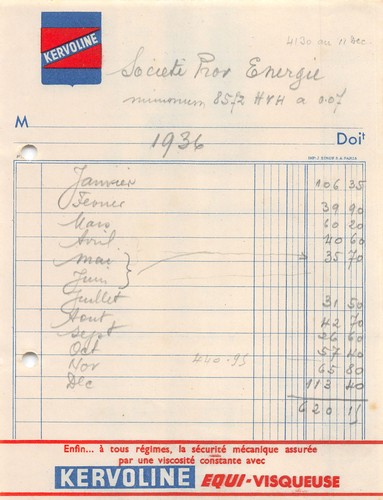 KERVOLINE
4130 au 11 Dec.
Societé Prov Energie
minimum 8572 HWH a 0.07
M
1936 Doit
Janvier 106 35
Fevrier 39 90
Mars 60 20
Avril 40 60
Mai 35 70
Juin
Juillet 31 50
Aout 42 70
Sept 26 60
Oct 57 40
Nov 440.95 65 80
Dec 113 40
620 15
Enfin... à tous régimes, la sécurité mécanique assurée
par une viscosité constante avec
KERVOLINE EQUI-VISQUEUSE